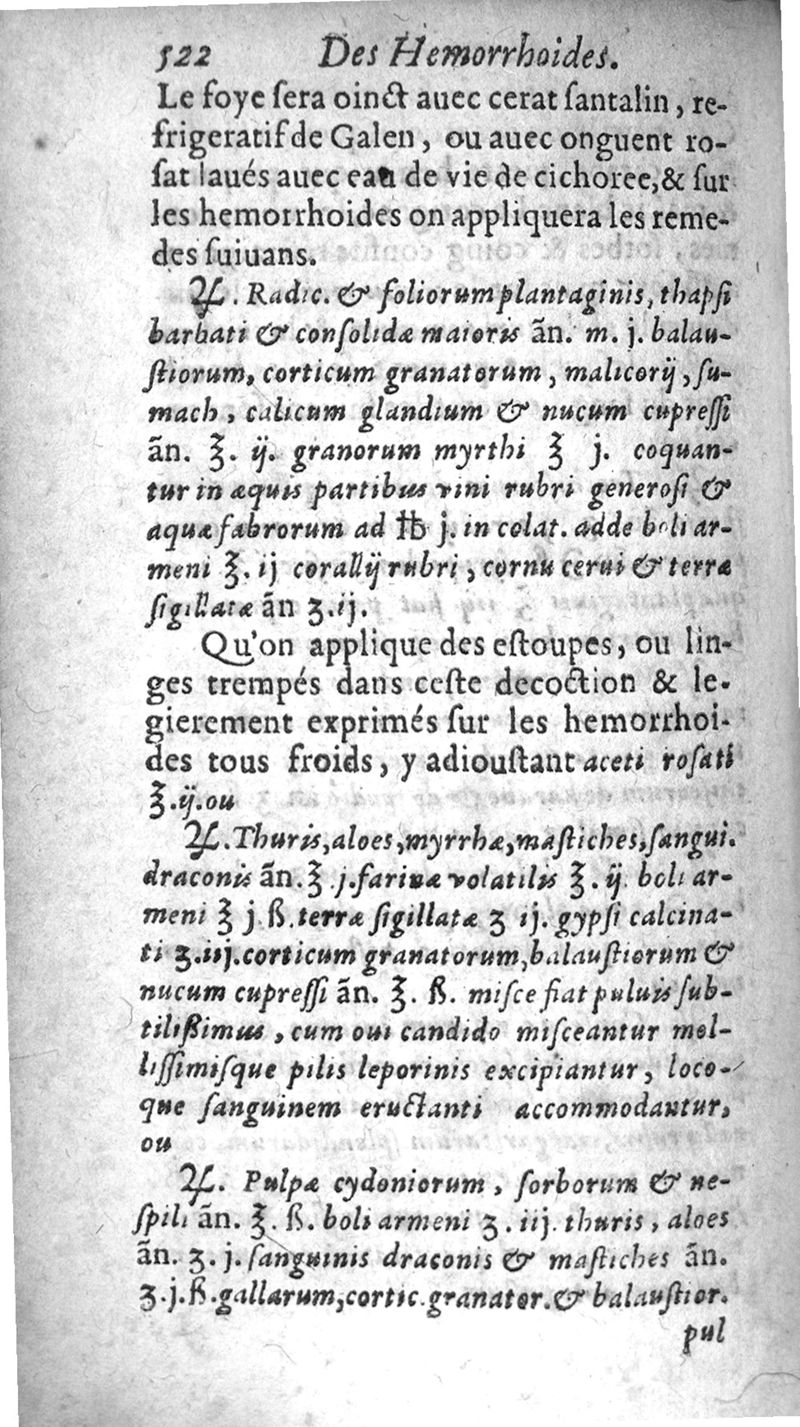 522 Des Hemorrhoides.
Le foye ſera oinct auec cerat ſantalin, re-
frigeratif de Galen, ou auec onguent ro-
ſat laués auec eau de vie de cichoree,& ſur
les hemorrhoides on appliquera les reme-
des ſuiuans.
℞. Radic. & foliorum plantaginis, thapſi
barbati & conſolidæ maioris ãn. m. j. balau-
ſtiorum, corticum granatorum, malicorij, ſu-
mach, calicum glandium & nucum cupreſſi
ãn. ℥. ij. granorum myrthi ℥ j. coquan-
tur in æquis partibus vini rubri generoſi &
aquæ fabrorum ad ℔ j. in colat. adde boli ar-
meni ℥. ij corallij rubri, cornu cerui & terræ
ſigillatæ ãn ʒ.ij.
Qu'on applique des eſtoupes, ou lin-
ges trempés dans ceſte decoction & le-
gierement exprimés ſur les hemorrhoi-
des tous froids, y adiouſtant aceti roſati
℥.ij.ou
℞.Thuris,aloes,myrrhæ,maſtiches,ſangui.
draconis ãn.℥.j.farinæ volatilis ℥.ij. boli ar-
meni ℥ j ß.terræ ſigillatæ ʒ ij. gypſi calcina-
ti ʒ.iij.corticum granatorum,balauſtiorum &
nucum cupreſſi ãn. ℥. ß. miſce fiat puluis ſub-
tilißimus, cum oui candido miſceantur mol-
liſſimiſque pilis leporinis excipiantur, loco-
que ſanguinem eructanti accommodantur,
ou
℞. Pulpæ cydoniorum, ſorborum & ne-
ſpili ãn. ℥. ß. boli armeni ʒ. iij. thuris, aloes
ãn. ʒ. j. ſanguinis draconis & maſtiches ãn.
ʒ.j.ß.gallarum,cortic.granator.& balauſtior.
pul